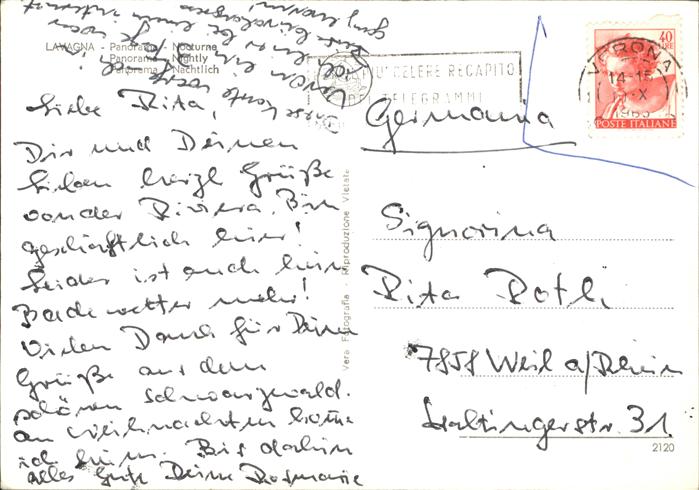 LAVAGNA - Panorama - Nocturne
Panorama - Nightly
Panorama - Nachtlich
Liebe Rita,
Dir und Deinen
Lieben herzl Grüße
von der Riviera. Bin
geschäftlich hier!
Leider ist auch hier
Badewetter mehr!
Vielen Dank für Deine
Grüße aus dem
schönen Schwarzwald.
An Weihnachten komme
ich heim. Bis dahin
alles Gute Deine Rosmarie
Diese Karte
Verona
Vera Fotografia - Riproduzione Vietata
PIU' CELERE RECAPITO
TELEGRAMMI
VERONA
14-15
X
40
LIRE
POSTE ITALIANE
Germania
Signorina
Rita Rotli
7858 Weil a/Rhein
Haltingerstr. 31
2120